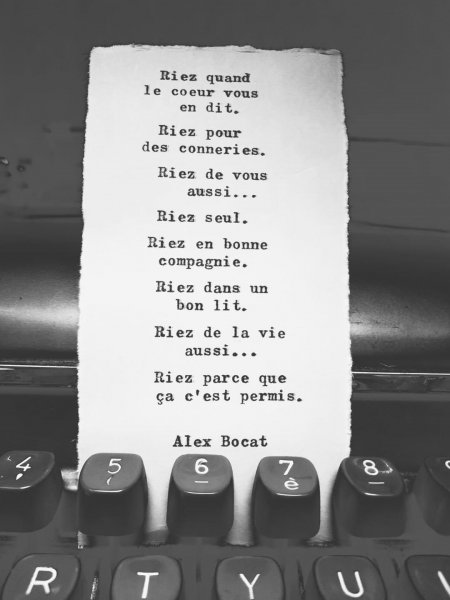 Riez quand
le coeur vous
en dit.
Riez pour
des conneries.
Riez de vous
aussi...
Riez seul.
Riez en bonne
compagnie.
Riez dans un
bon lit.
Riez de la vie
aussi...
Riez parce que
ça c'est permis.
Alex Bocat
4 5 6 7 8
( _ è _
R T Y U